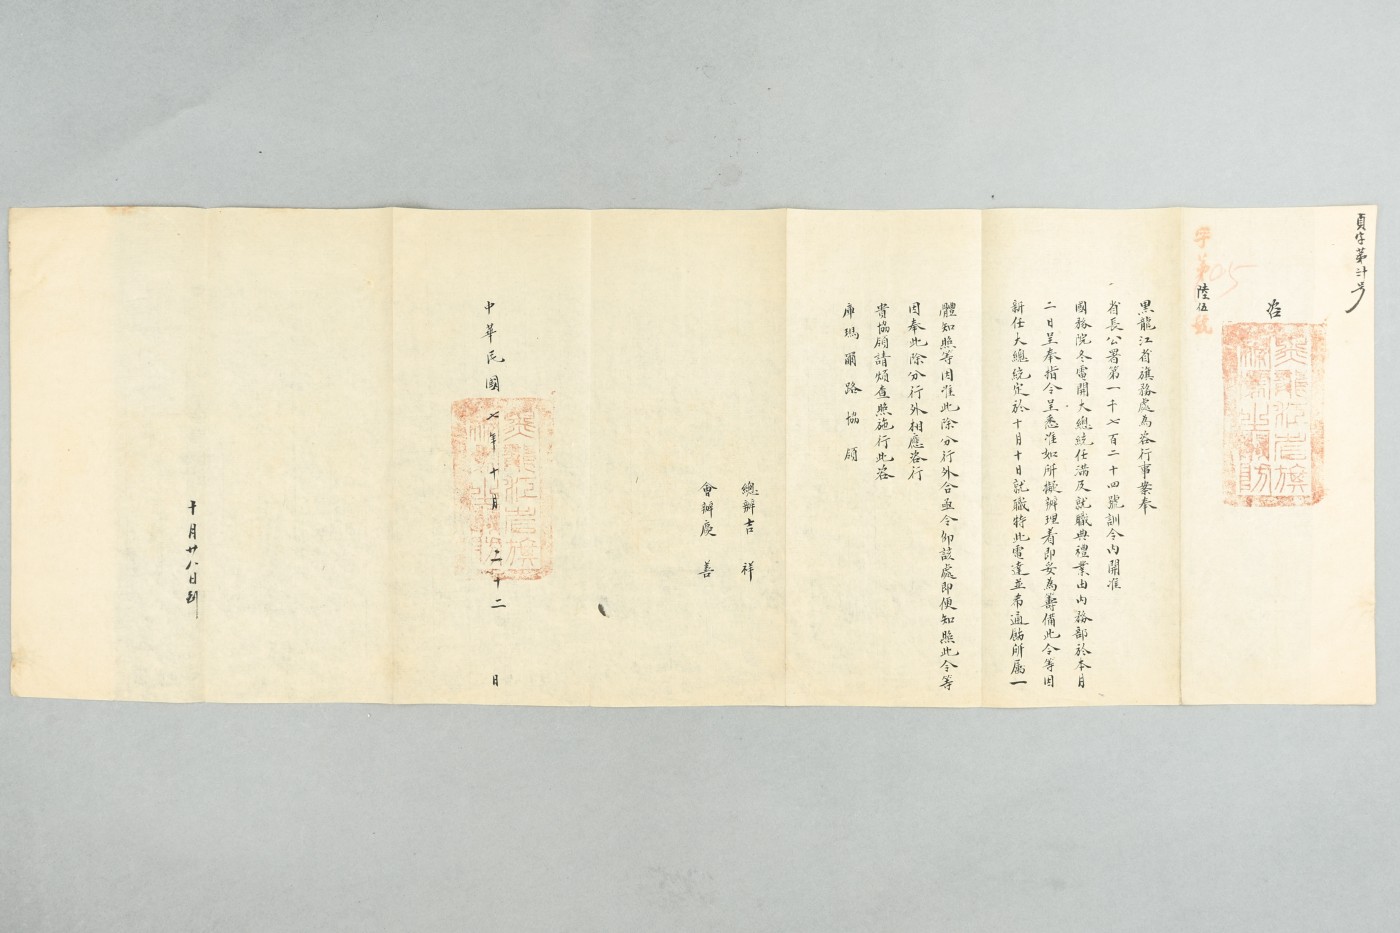 貞字第廿号
咨
字第陸伍號
05
黑龍江省旗務處為咨行事案奉
省長公署第一千七百二十四號訓令內開准
國務院冬電開大總統任滿及就職典禮業由內務部於本月
二日呈奉指令呈悉准如所擬辦理着即妥為籌備此令等因
新任大總統定於十月十日就職特此電達並希通飭所屬一
體知照等因准此除分行外合亟令仰該處即便知照此令等
因奉此除分行外相應咨行
貴協領請煩查照施行此咨
庫瑪爾路協領
總辦吉祥
會辦慶善
中華民國七年十月二十二日
十月廿八日到